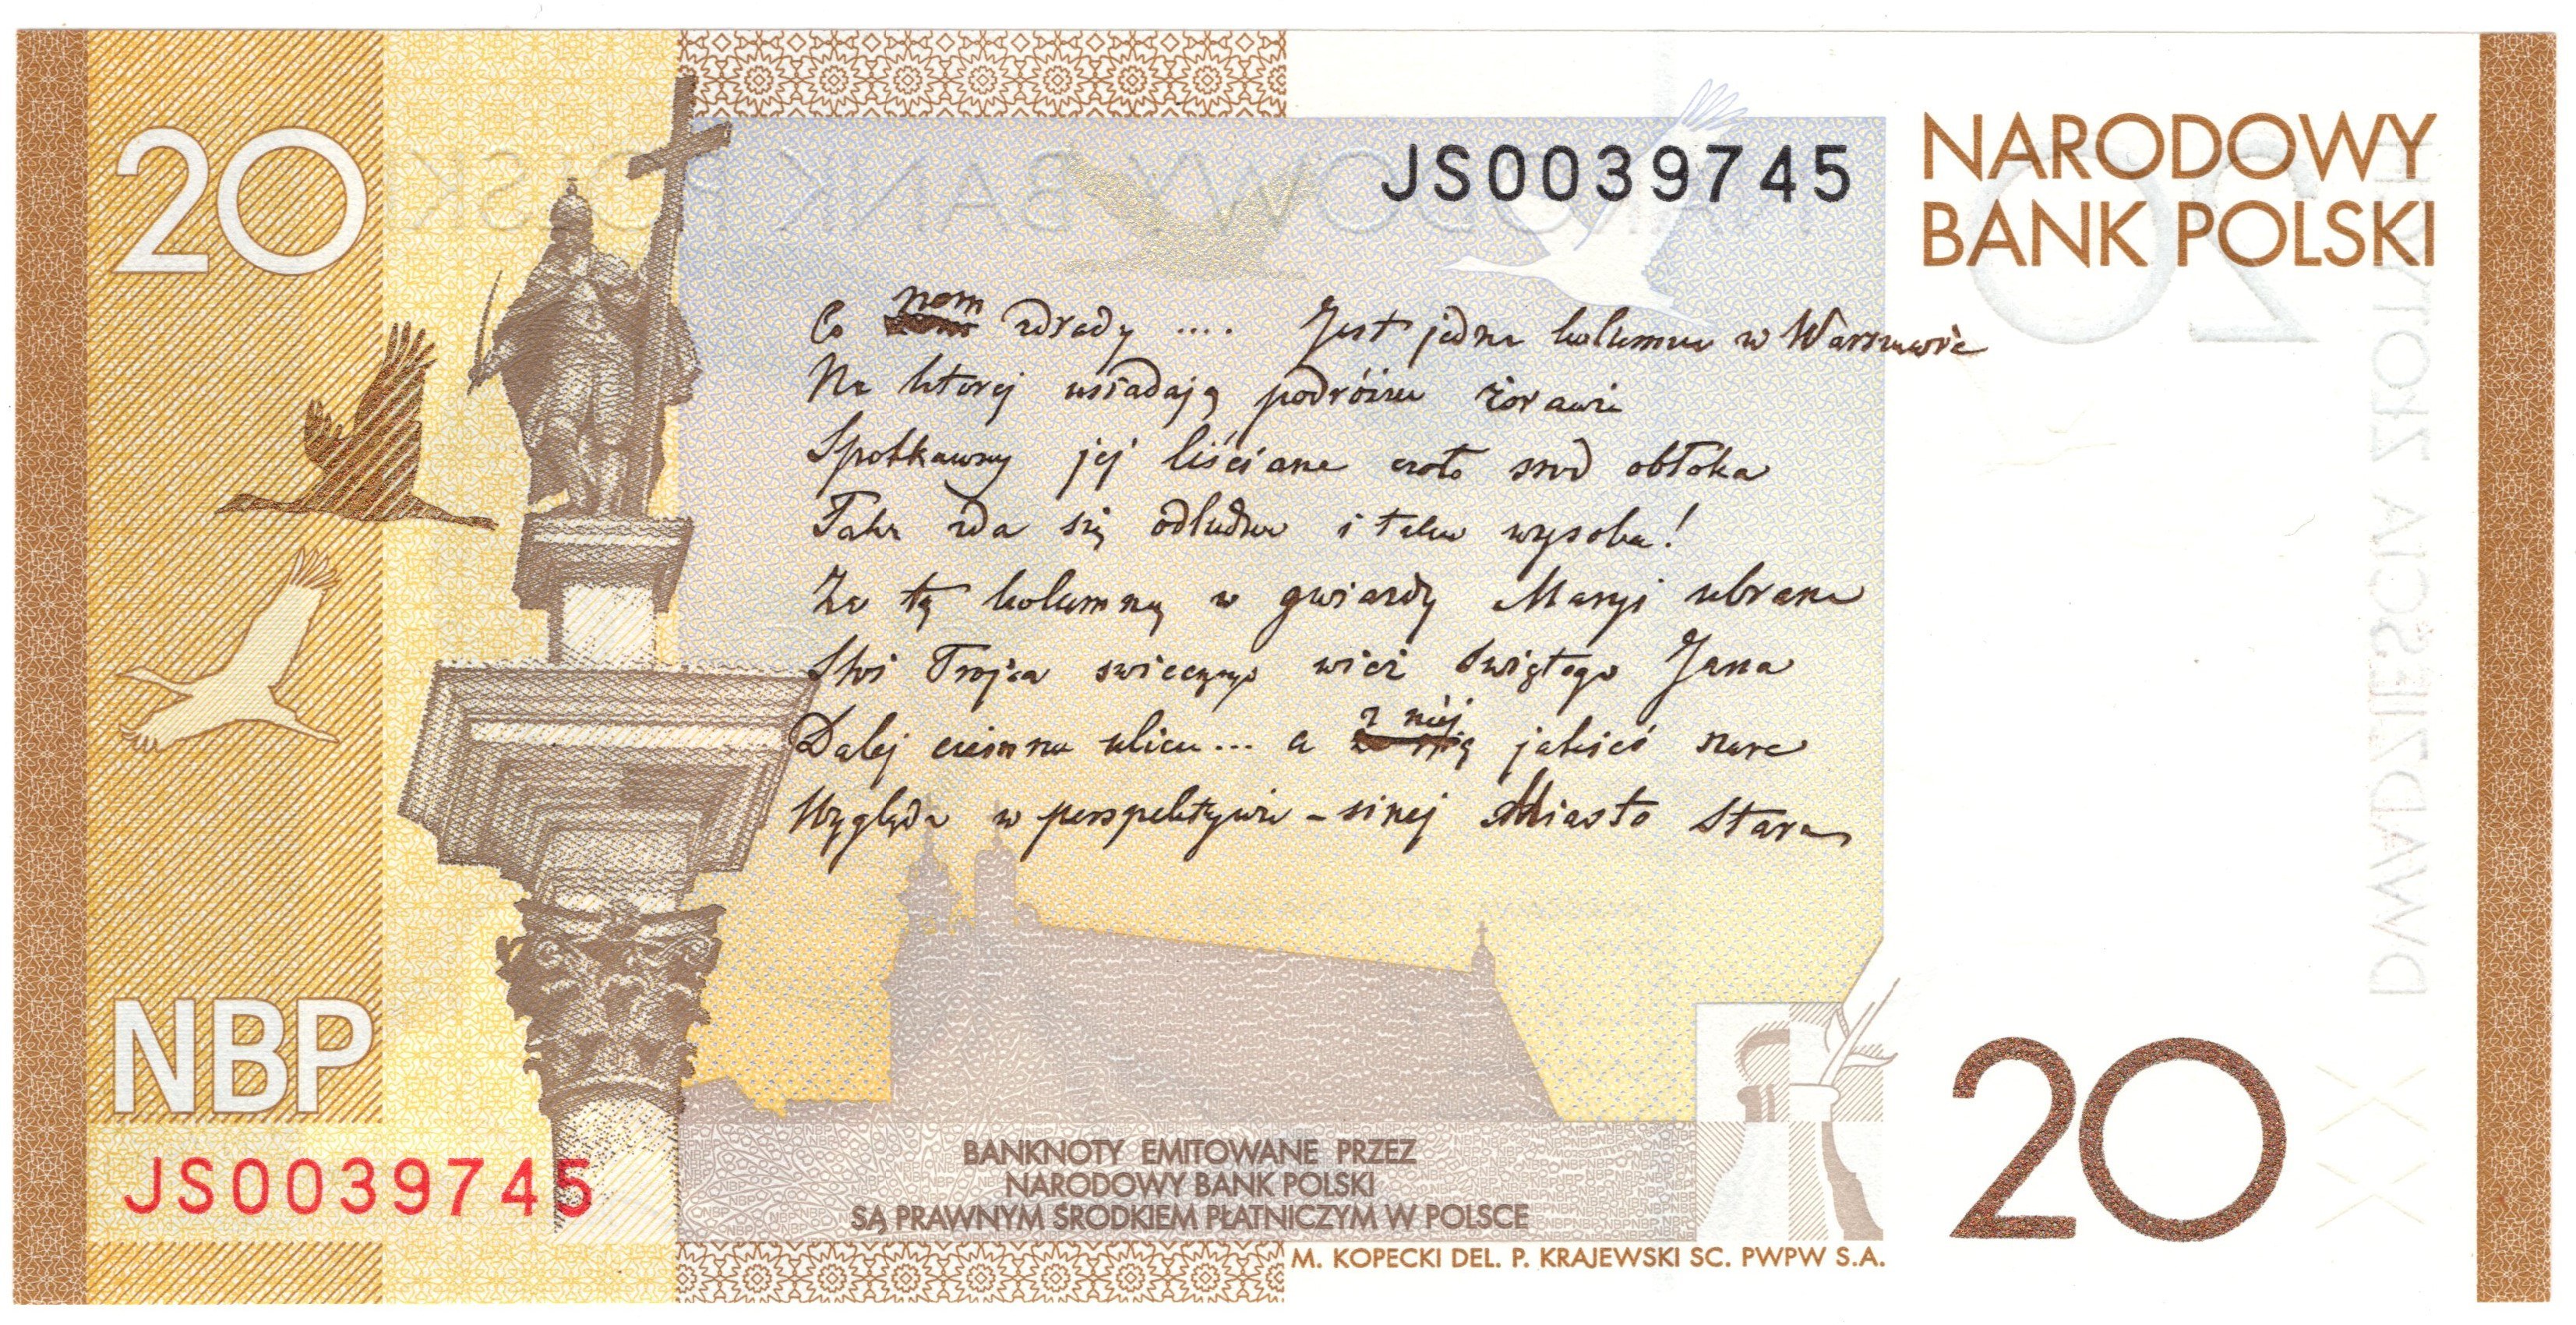 20
JS0039745
NARODOWY
BANK POLSKI
Co nam zdrady .... Jest jedna kolumna w Warszawie
Na ktorej usiadają podróżne żórawie
Spotkawszy jej liściane czoło środ obłoka
Taka zda się odludna i taka wysoka!
Za tą kolumną w gwiazdy Maryi ubrana
Stoi Trojca swiecznego wież Swiętego Jana
Dalej ciemna ulica... a z niéj jakieś szare
Wygląda w perspektywie - sinej Miasto Stare
NBP
JS0039745
BANKNOTY EMITOWANE PRZEZ
NARODOWY BANK POLSKI
SĄ PRAWNYM ŚRODKIEM PŁATNICZYM W POLSCE
20
M. KOPECKI DEL. P. KRAJEWSKI SC. PWPW S.A.